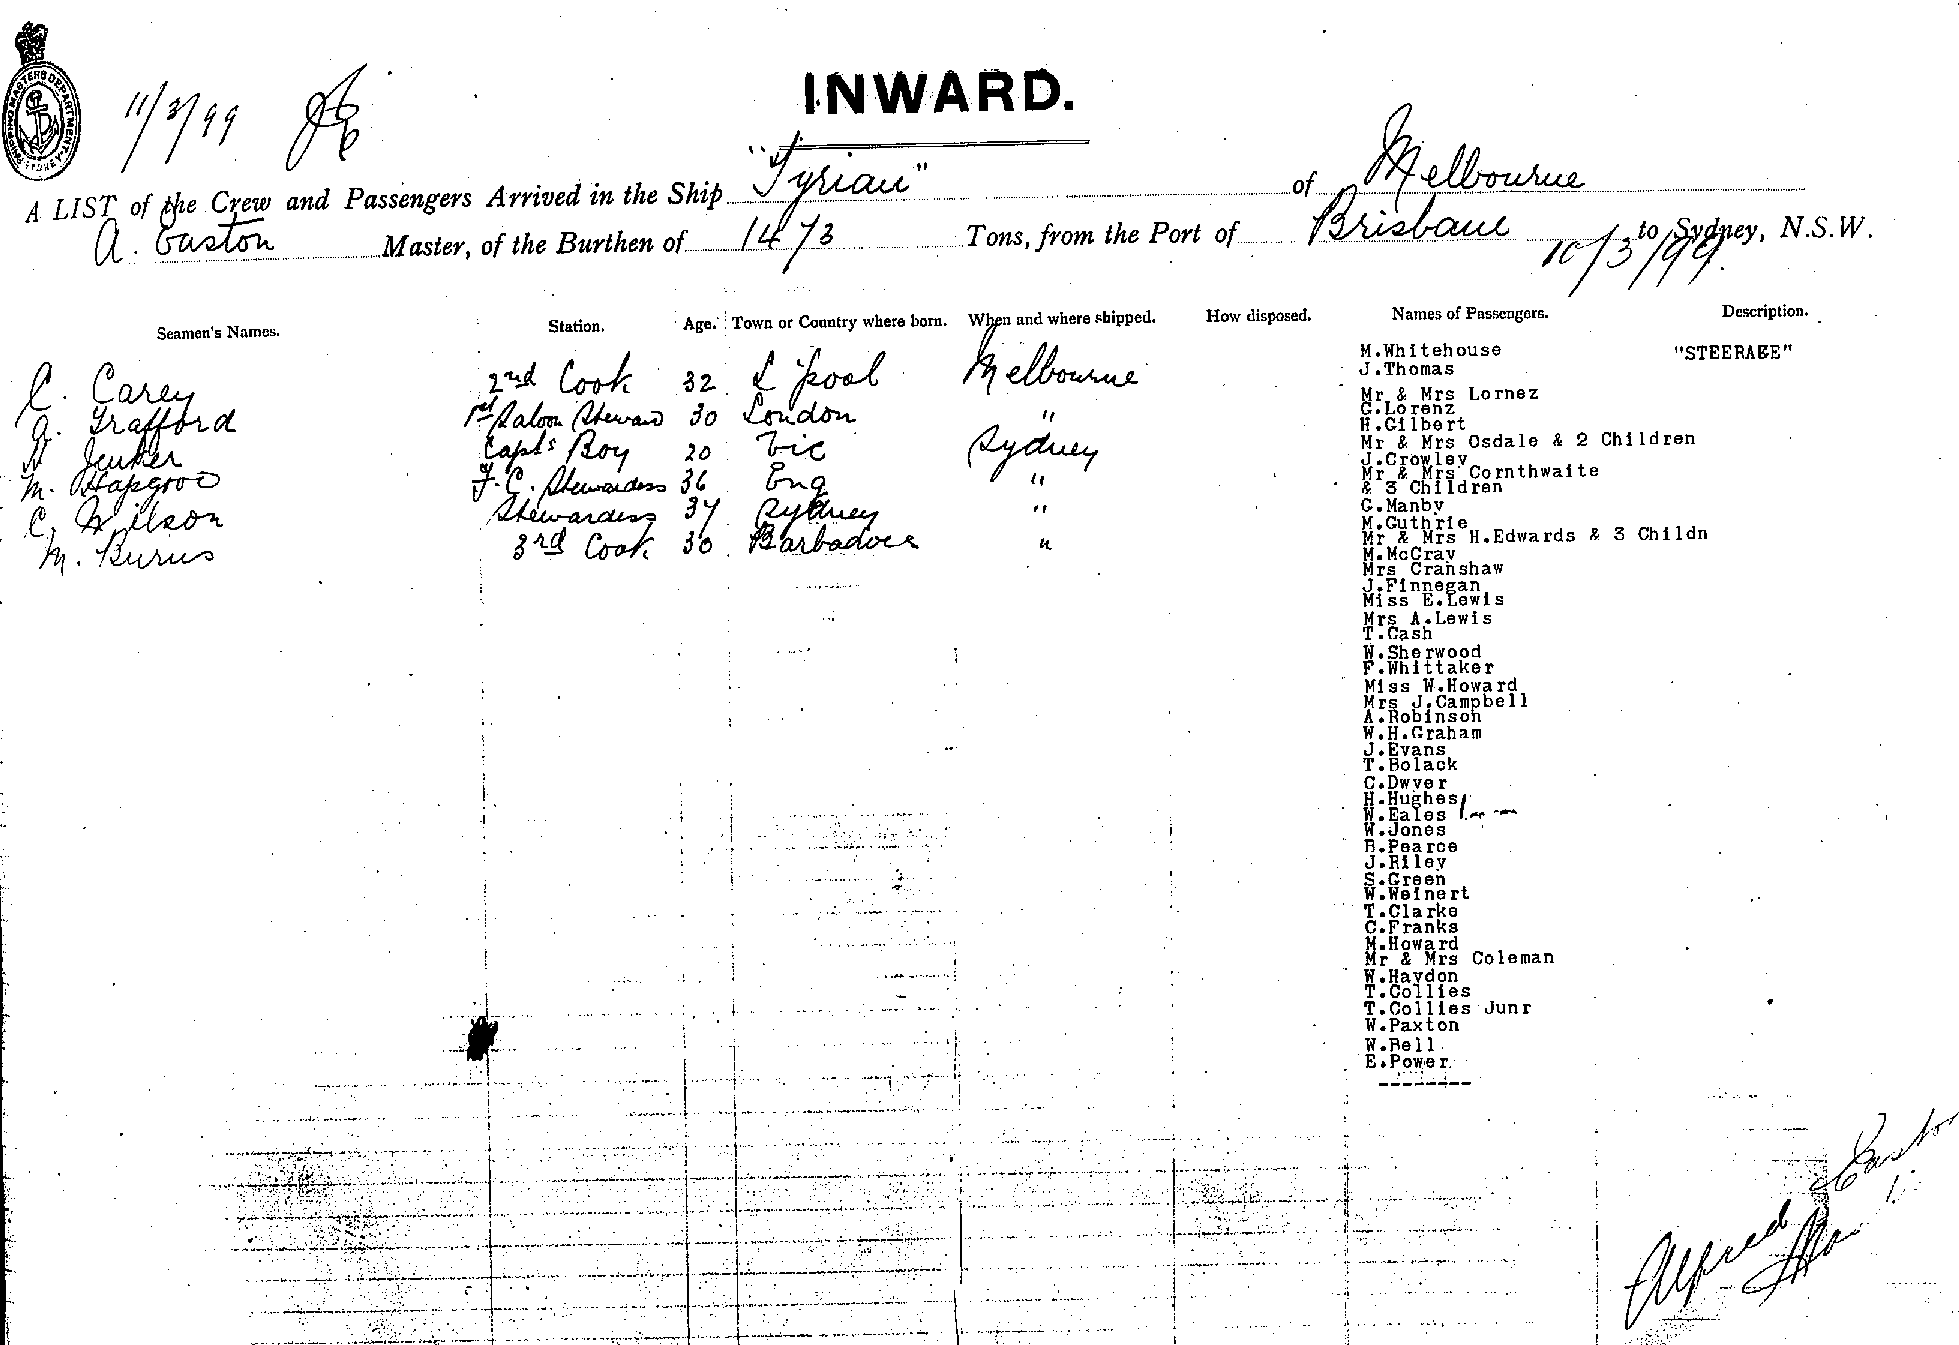 SHIPPING MASTERS DEPARTMENT SYDNEY
11/3/99
INWARD.
A LIST of the Crew and Passengers Arrived in the Ship "Tyrian" of Melbourne
A. Easton Master, of the Burthen of 1473 Tons, from the Port of Brisbane to Sydney, N.S.W.
10/3/99.
Seamen's Names. Station. Age. Town or Country where born. When and where shipped. How disposed. Names of Passengers. Description.
C. Carey 2nd Cook 32 L'pool Melbourne
A. Grafford 1st Saloon Steward 30 London "
H. Junker Capts Boy 20 Vic Sydney
M. Hapgood F.C. Stewardess 36 Eng "
C. Wilson Stewardess 37 Sydney "
M. Burns 3rd Cook 30 Barbadoes "
M.Whitehouse "STEERAGE"
J.Thomas
Mr & Mrs Lornez
G.Lorenz
H.Gilbert
Mr & Mrs Osdale & 2 Children
J.Crowley
Mr & Mrs Cornthwaite
& 3 Children
G.Manby
M.Guthrie
Mr & Mrs H.Edwards & 3 Childn
M.McCray
Mrs Cranshaw
J.Finnegan
Miss E.Lewis
Mrs A.Lewis
T.Cash
W.Sherwood
F.Whittaker
Miss W.Howard
Mrs J.Campbell
A.Robinson
W.H.Graham
J.Evans
T.Bolack
C.Dwyer
H.Hughes
W.Eales
W.Jones
B.Pearce
J.Riley
S.Green
W.Weinert
T.Clarke
C.Franks
M.Howard
Mr & Mrs Coleman
W.Haydon
T.Collies
T.Collies Junr
W.Paxton
W.Bell
E.Power
--------
Alfred Easton